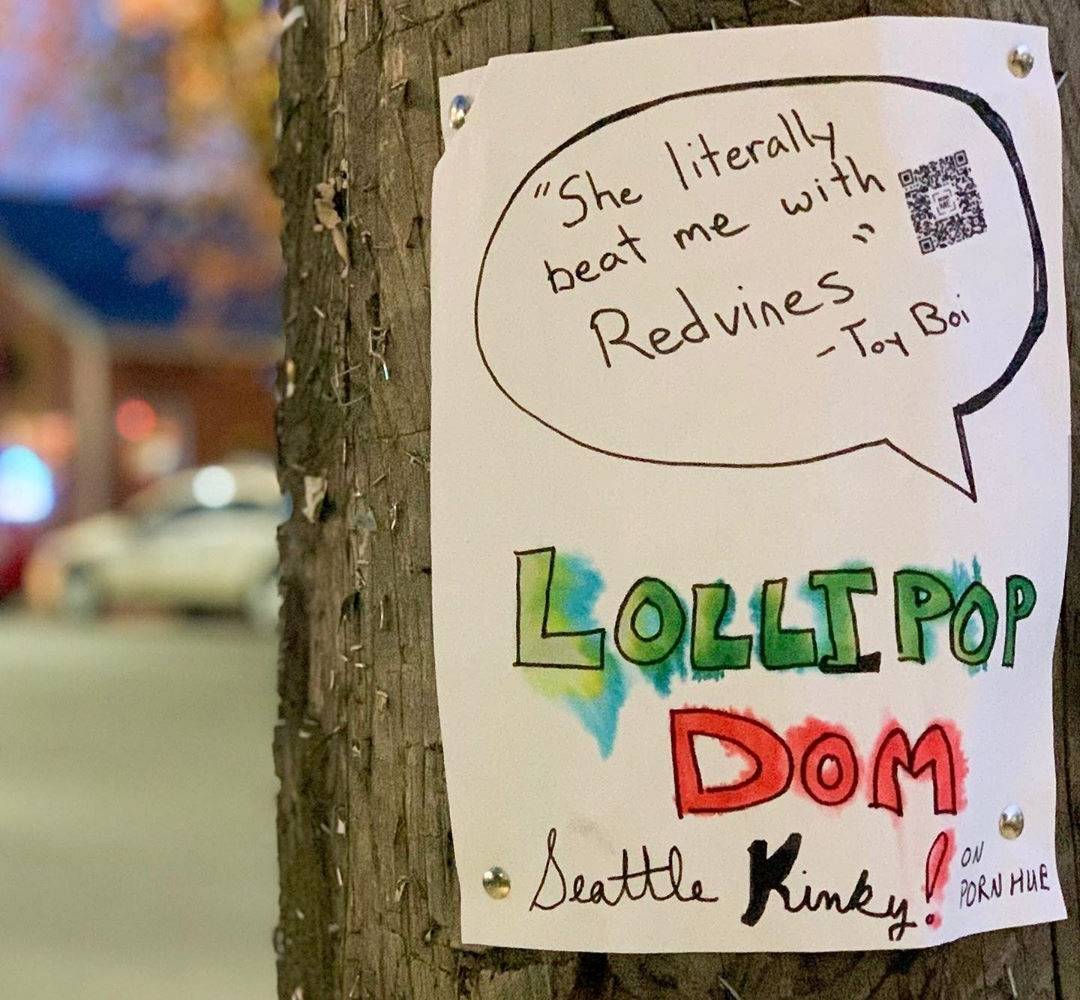 "She literally
beat me with
Redvines"
-Toy Boi
LOLLIPOP
DOM
Seattle Kinky!
ON
PORN HUE